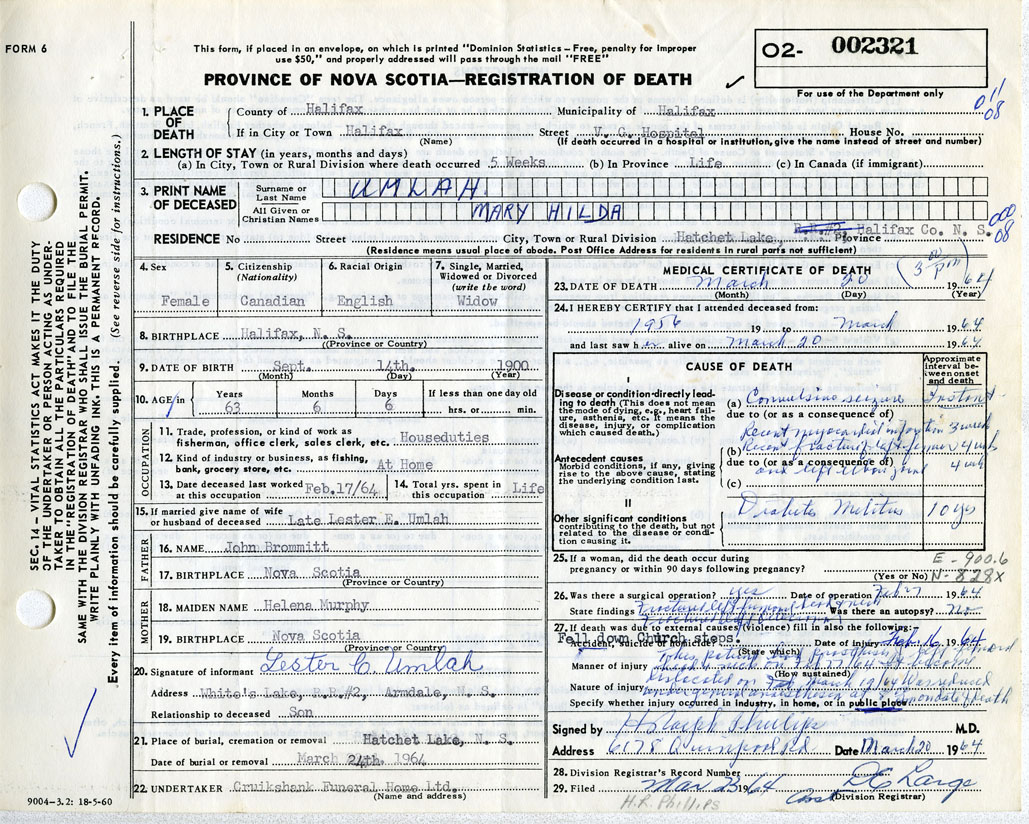 FORM 6
This form, if placed in an envelope, on which is printed "Dominion Statistics—Free, penalty for improper
use $50," and properly addressed will pass through the mail "FREE"
PROVINCE OF NOVA SCOTIA—REGISTRATION OF DEATH
O2- 002321
For use of the Department only
011
08
1. PLACE OF DEATH
County of Halifax Municipality of Halifax
If in City or Town Halifax (Name) Street V. G. Hospital House No.
(If death occurred in a hospital or institution, give the name instead of street and number)
2. LENGTH OF STAY (in years, months and days)
(a) In City, Town or Rural Division where death occurred 5 Weeks (b) In Province Life (c) In Canada (if immigrant)
3. PRINT NAME OF DECEASED
Surname or Last Name UMLAH
All Given or Christian Names MARY HILDA
000
08
RESIDENCE No Street City, Town or Rural Division Hatchet Lake, R.R.#2, Province Halifax Co. N. S.
(Residence means usual place of abode. Post Office Address for residents in rural parts not sufficient)
4. Sex Female
5. Citizenship (Nationality) Canadian
6. Racial Origin English
7. Single, Married, Widowed or Divorced (write the word) Widow
8. BIRTHPLACE Halifax, N. S.
(Province or Country)
9. DATE OF BIRTH Sept. 14th. 1900
(Month) (Day) (Year)
10. AGE in Years 63 Months 6 Days 6 If less than one day old hrs. or min.
OCCUPATION
11. Trade, profession, or kind of work as fisherman, office clerk, sales clerk, etc. Houseduties
12. Kind of industry or business, as fishing, bank, grocery store, etc. At Home
13. Date deceased last worked at this occupation Feb.17/64
14. Total yrs. spent in this occupation Life
15. If married give name of wife or husband of deceased Late Lester E. Umlah
FATHER
16. NAME John Brommitt
17. BIRTHPLACE Nova Scotia
(Province or Country)
MOTHER
18. MAIDEN NAME Helena Murphy
19. BIRTHPLACE Nova Scotia
(Province or Country)
20. Signature of informant Lester C. Umlah
Address White's Lake, R.R.#2, Armdale, N. S.
Relationship to deceased Son
21. Place of burial, cremation or removal Hatchet Lake, N. S.
Date of burial or removal March 24th. 1964
22. UNDERTAKER Cruikshank Funeral Home Ltd.
(Name and address)
MEDICAL CERTIFICATE OF DEATH
3 00 pm
23. DATE OF DEATH March 20 1964
(Month) (Day) (Year)
24. I HEREBY CERTIFY that I attended deceased from:
1956 19 to March 1964
and last saw her alive on March 20 1964
CAUSE OF DEATH
Approximate interval between onset and death
I
Disease or condition directly leading to death (This does not mean the mode of dying, e.g., heart failure, asthenia, etc. It means the disease, injury, or complication which caused death.)
(a) Convulsive seizure Instant
due to (or as a consequence of)
Recent myocardial infarction 3 week
Antecedent causes
Morbid conditions, if any, giving rise to the above cause, stating the underlying condition last.
(b) Recent fracture left femur 4 wk
due to (or as a consequence of)
and left elbow joint 4 wk
(c)
II
Other significant conditions contributing to the death, but not related to the disease or condition causing it.
Diabetes Mellitus 10 yrs
25. If a woman, did the death occur during pregnancy or within 90 days following pregnancy?
(Yes or No)
E - 900.6
N- 828X
26. Was there a surgical operation? yes Date of operation Feb 17 1964
State findings Fractured left femur Was there an autopsy? no
27. If death was due to external causes (violence) fill in also the following:—
Fell down Church steps.
Accident, suicide or homicide? (State which) Date of injury Feb. 16 1964
Manner of injury (How sustained)
Nature of injury
Specify whether injury occurred in industry, in home, or in public place
Signed by H Ralph Phillips M.D.
Address 6178 Quinpool Rd Date March 20 1964
28. Division Registrar's Record Number
29. Filed Mar 23 1964 D C Large
(Division Registrar)
H.R. PHILLIPS
SEC. 14 – VITAL STATISTICS ACT MAKES IT THE DUTY
OF THE UNDERTAKER OR PERSON ACTING AS UNDER-
TAKER TO OBTAIN ALL THE PARTICULARS REQUIRED
IN THE "REGISTRATION OF DEATH" AND TO FILE THE
SAME WITH THE DIVISION REGISTRAR WHO SHALL ISSUE THE BURIAL PERMIT.
WRITE PLAINLY WITH UNFADING INK. THIS IS A PERMANENT RECORD.
Every item of information should be carefully supplied. (See reverse side for instructions.)
9004–3.2: 18-5-60